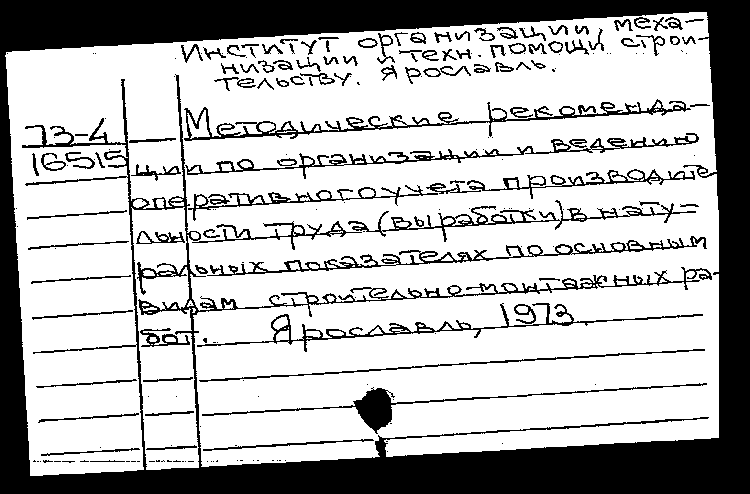 Институт организации, меха-
низации и техн. помощи строи-
тельству. Ярославль.
73-4
16515
Методические рекоменда-
ции по организации и ведению
оперативного учета производите-
льности труда (выработки) в нату-
ральных показателях по основным
видам строительно-монтажных ра-
бот. Ярославль, 1973.